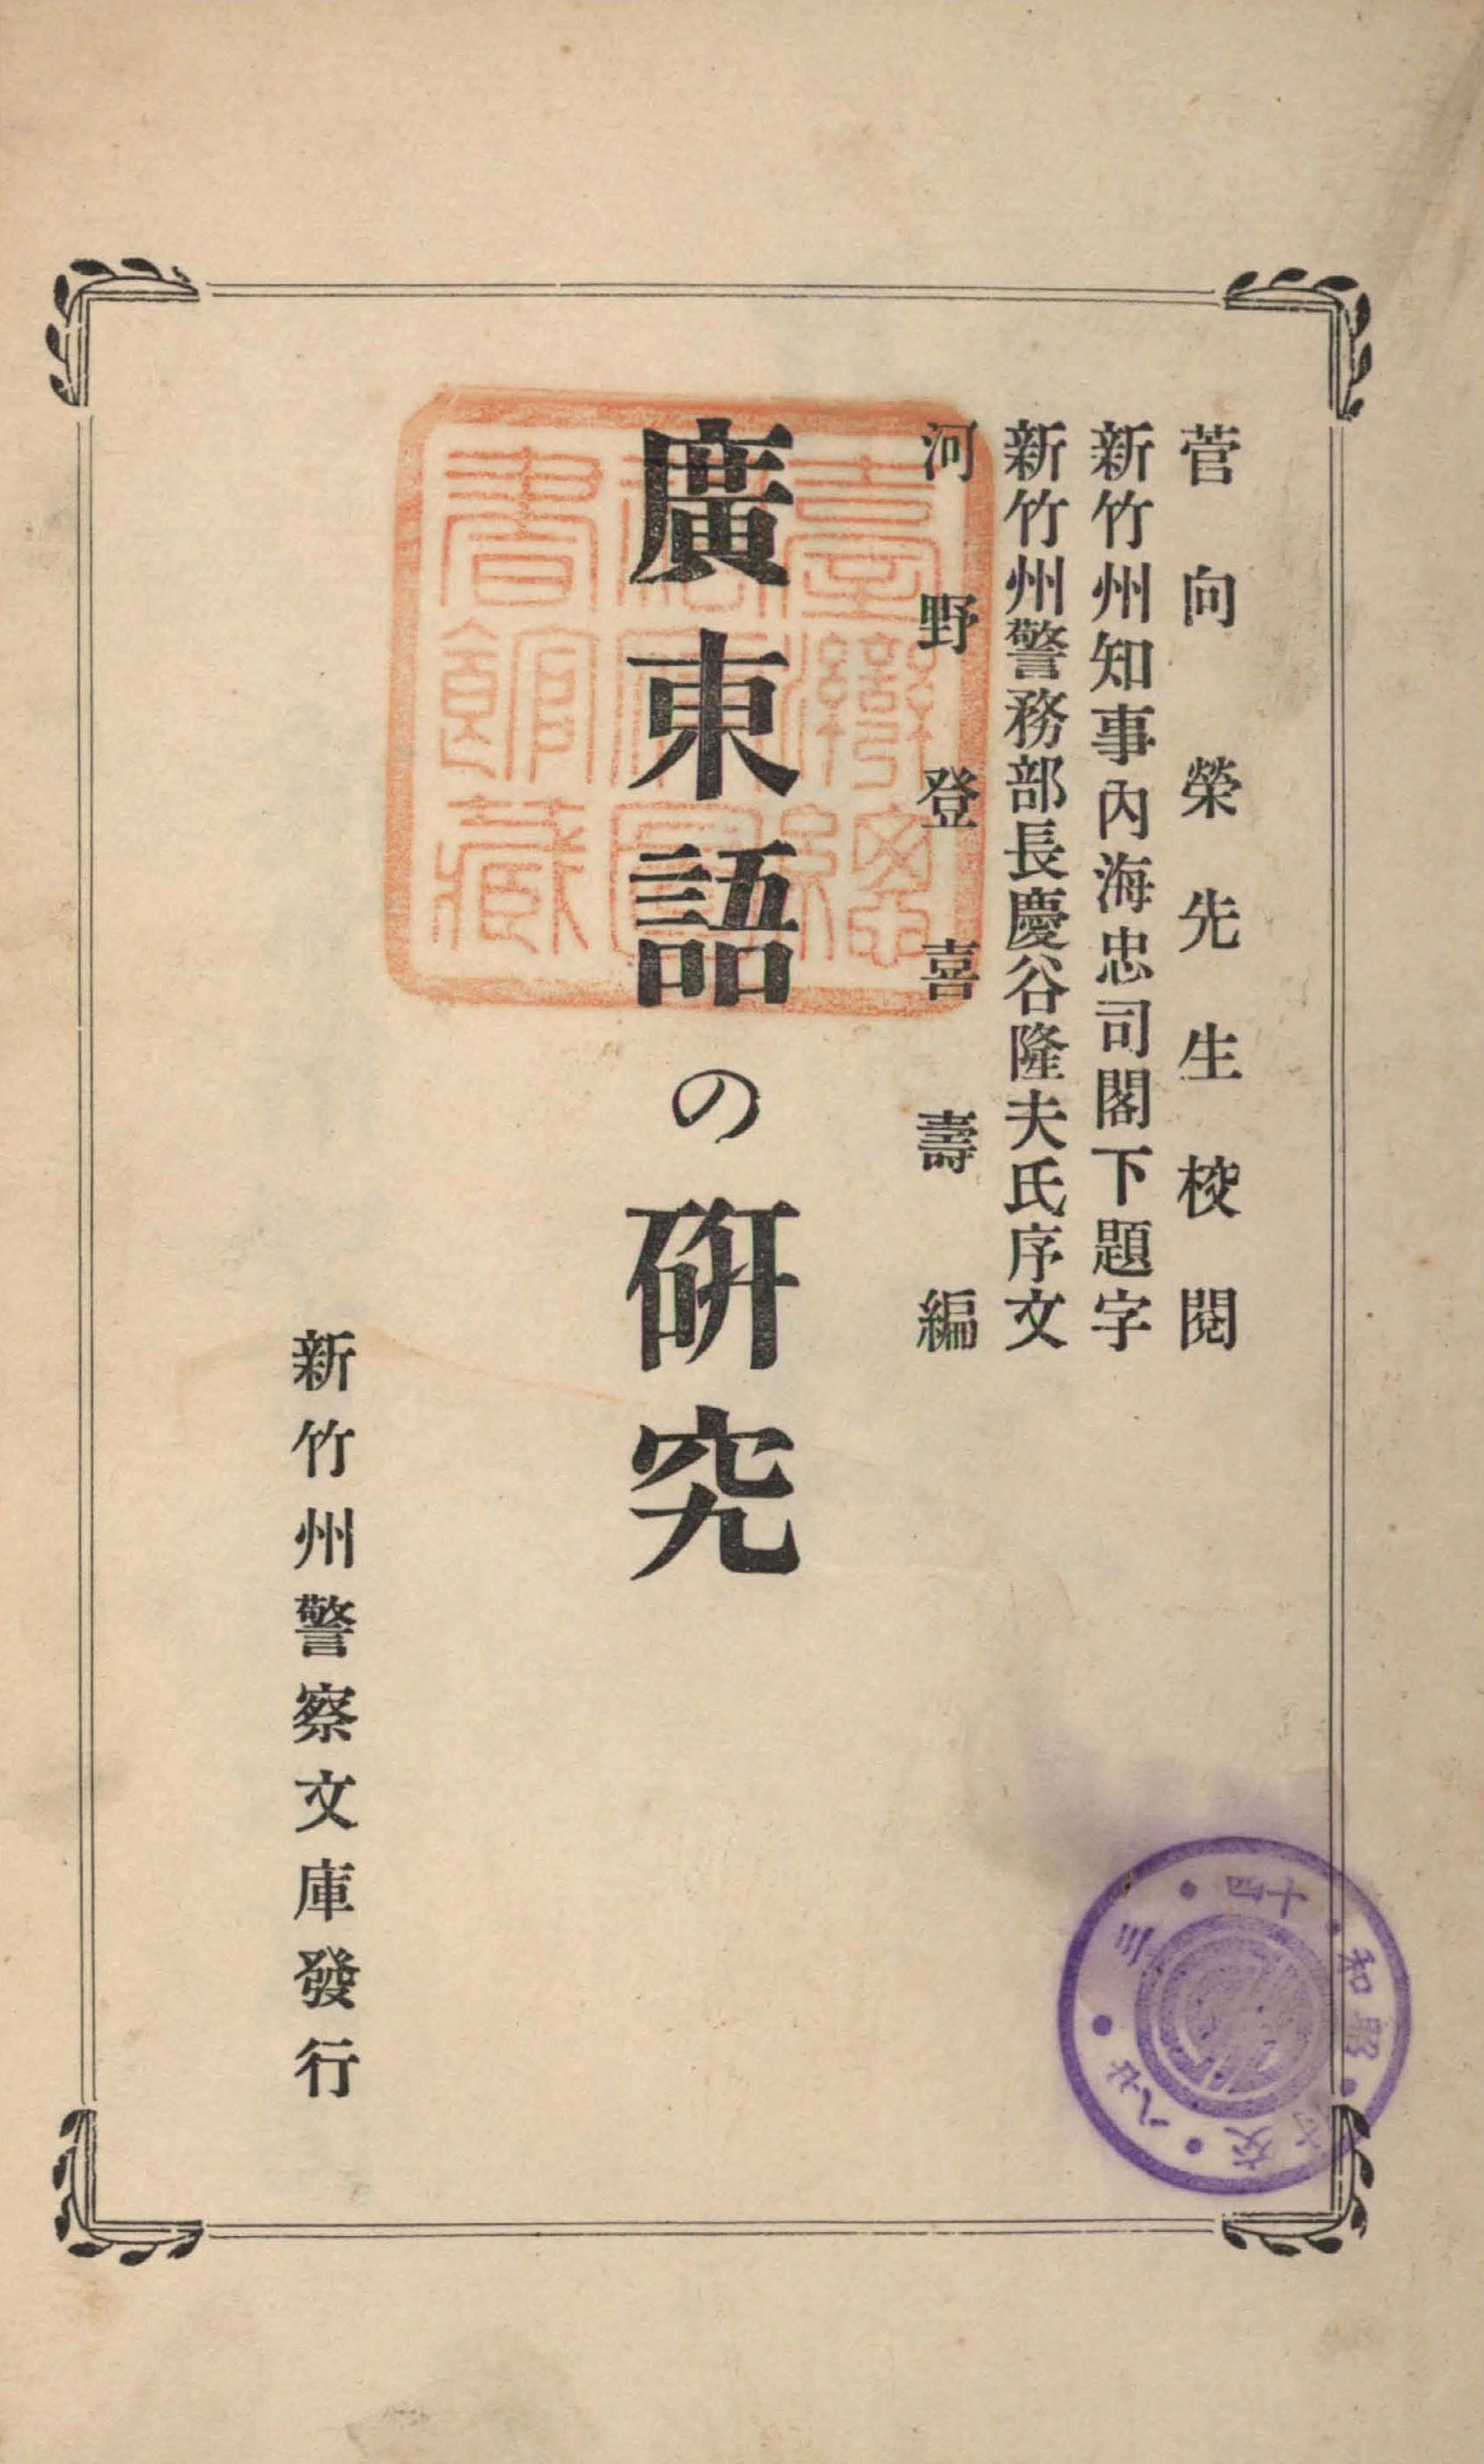 菅向榮先生校閱
新竹州知事內海忠司閣下題字
新竹州警務部長慶谷隆夫氏序文
河野登喜壽編
廣東語の硏究
新竹州警察文庫發行
臺灣總督府圖書館藏
昭和・十四・三・